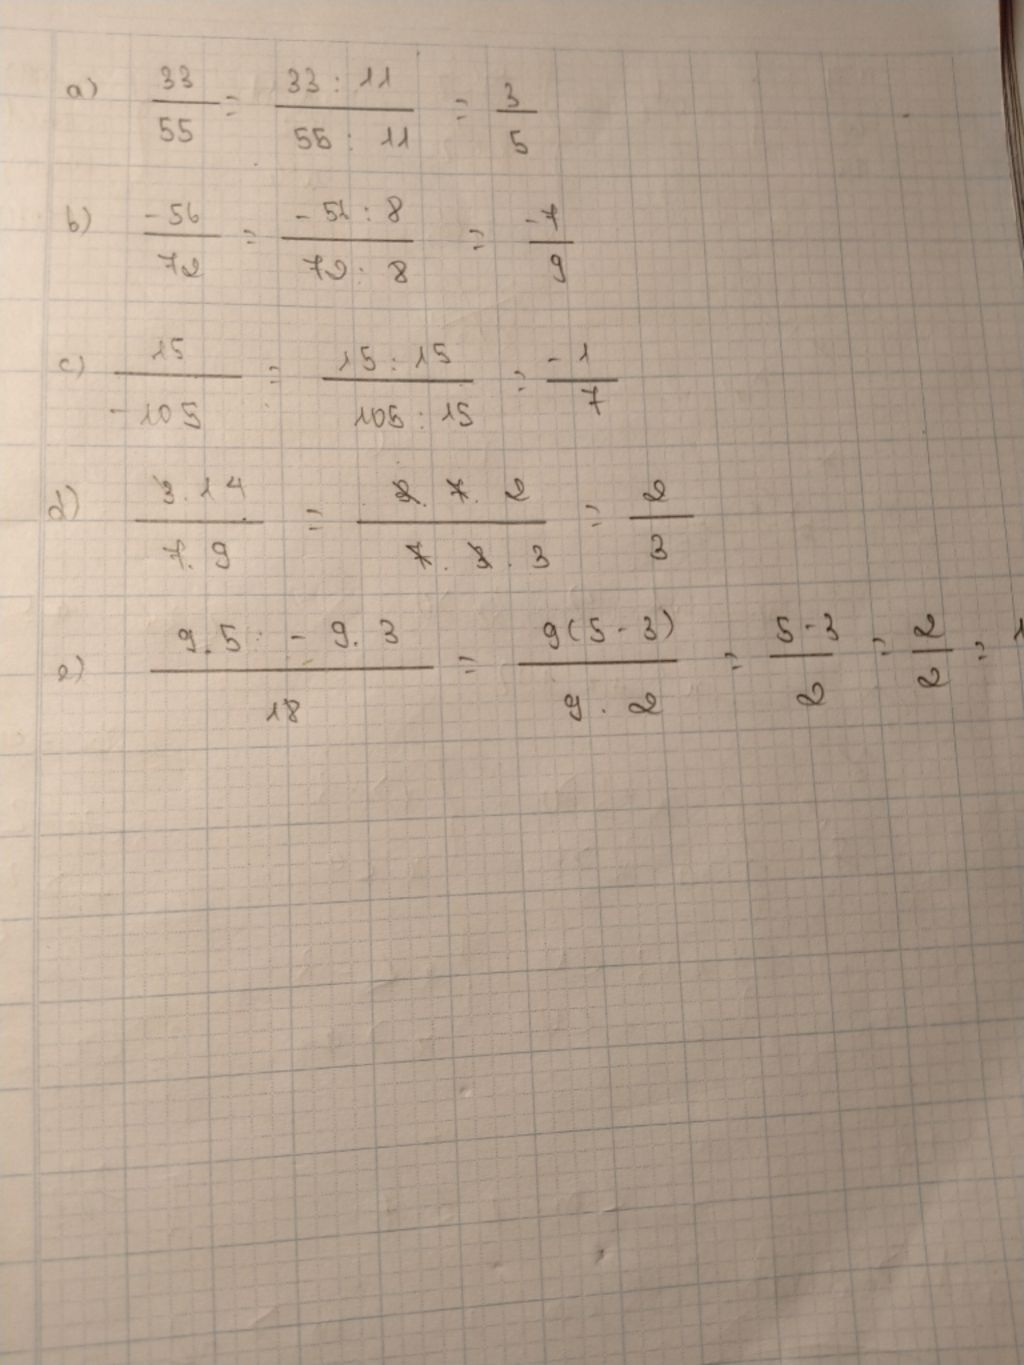 a) 33/55 = 33 : 11/55 : 11 = 3/5
b) -56/72 = -51 : 8/72 : 8 = -7/9
c) 15/-105 = 15 : 15/105 : 15 = -1/7
d) 3.14/7.9 = 7. 2/7. 3. 3 = 2/3
e) 9.5 - 9.3/18 = 9(5-3)/9.2 = 5-3/2 = 2/2 = 1